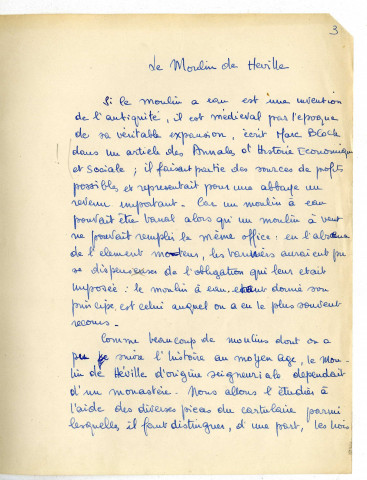 3
Le Moulin de Heville
Si le moulin a eau est une invention
de l'antiquité, il est médieval par l'epoque
de sa véritable expansion, écrit Marc Block
dans un article des Annales d'Histoire Economique
et Sociale ; il faisait partie des sources de profits
possibles et representait pour une abbaye un
revenu important. Car un moulin à eau
pouvait être banal alors qu'un moulin à vent
ne pouvait remplir le même office : en l'absence
de l'element moteur, les banniers auraient pu
se dispenser de l'obligation qui leur etait
imposée : le moulin à eau etant donné son
principe, est celui auquel on a eu le plus souvent
recours.
Comme beaucoup de moulins dont on a
pu suivre l'histoire au moyen age, le Mou-
lin de Héville d'origine seigneuriale dependait
d'un monastère. Nous allons l'étudier à
l'aide des diverses pieces du cartulaire parmi
lesquelles il faut distinguer, d'une part, les trois